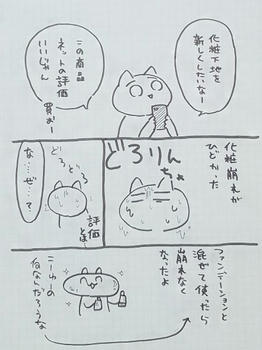 化粧下地を
新しくしたいなー
この商品
ネットの評価
いいじゃん
買おー
化粧崩れが
ひどかった
どろりん
ちょ
どろどろ
評価
とは
な…ぜ…?
ファンデーションと
混ぜて使ったら
崩れなく
なったよ
こーゆーの
何なんだろうな